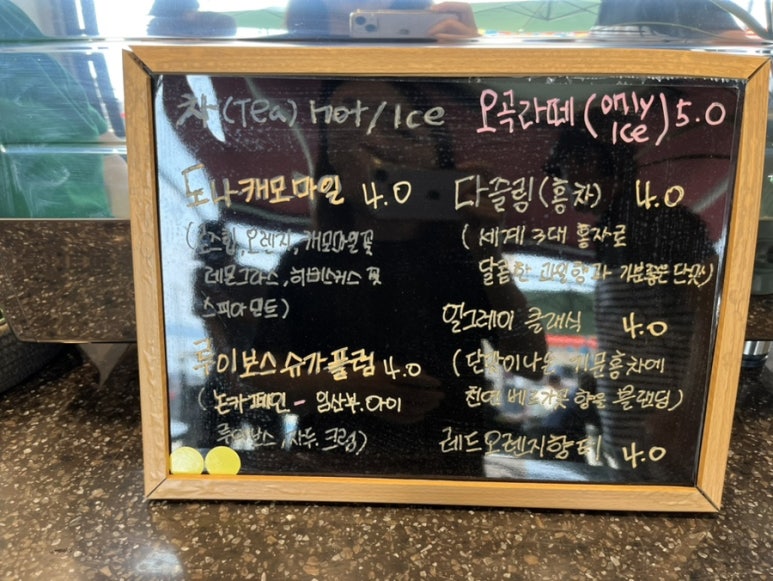 차 (Tea) Hot / Ice
도나캐모마일 4.0
(로즈힙, 오렌지, 캐모마일꽃
레몬그라스, 히비스커스 꽃
스피아민트)
루이보스 슈가플럼 4.0
(논카페인 - 임산부, 아이
루이보스, 자두, 크림)
오곡라떼 (only Ice) 5.0
다즐링 (홍차) 4.0
(세계 3대 홍차로
달콤한 과일향과 기분좋은 단맛)
얼그레이 클래식 4.0
(단맛이나는 홍차에
천연 베르가못 향을 블랜딩)
레드오렌지향티 4.0